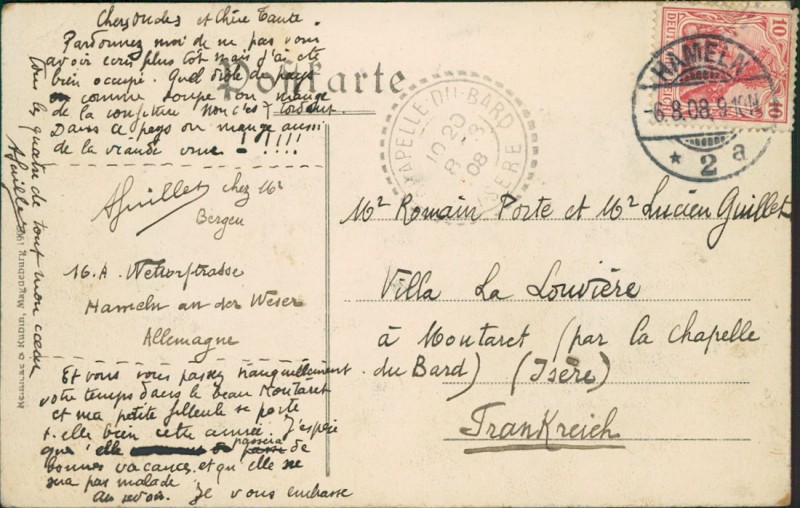 Chers Ondes et Chère Tante.
Pardonnez moi de ne pas vous
avoir écrit plus tôt mais j'ai été
bien occupé. Quel drôle de pays
on comme soupe on mange
de la confiture Non c'es tordant.
Dans ce pays on mange aussi
de la viande crue - ! !!!!
AGuillet chez Mr
Bergen
16.A. Wetsorstrasse
Hameln an der Weser
Allemagne
Et vous vous passez tranquillement
votre temps dans le beau Montaret
et ma petite filleule se porte
t-elle bien cette année. J'espère
que'elle passera de
bonnes vacances et qu'elle ne
sera pas malade
Au revoir. Je vous embrasse
tous les quatre de tout mon cœur
AGuillet
Magdeburg
Postkarte
CHAPELLE-DU-BARD
ISERE
10 20
8 -8
08
DEUTSCHES REICH
10 10
HAMELN
-6.8.08.9-10N
* 2 a
Mr Romain Porte et Mr Lucien Guillet
Villa La Louvière
à Montaret (par la Chapelle
du Bard) (Isère)
Frankreich